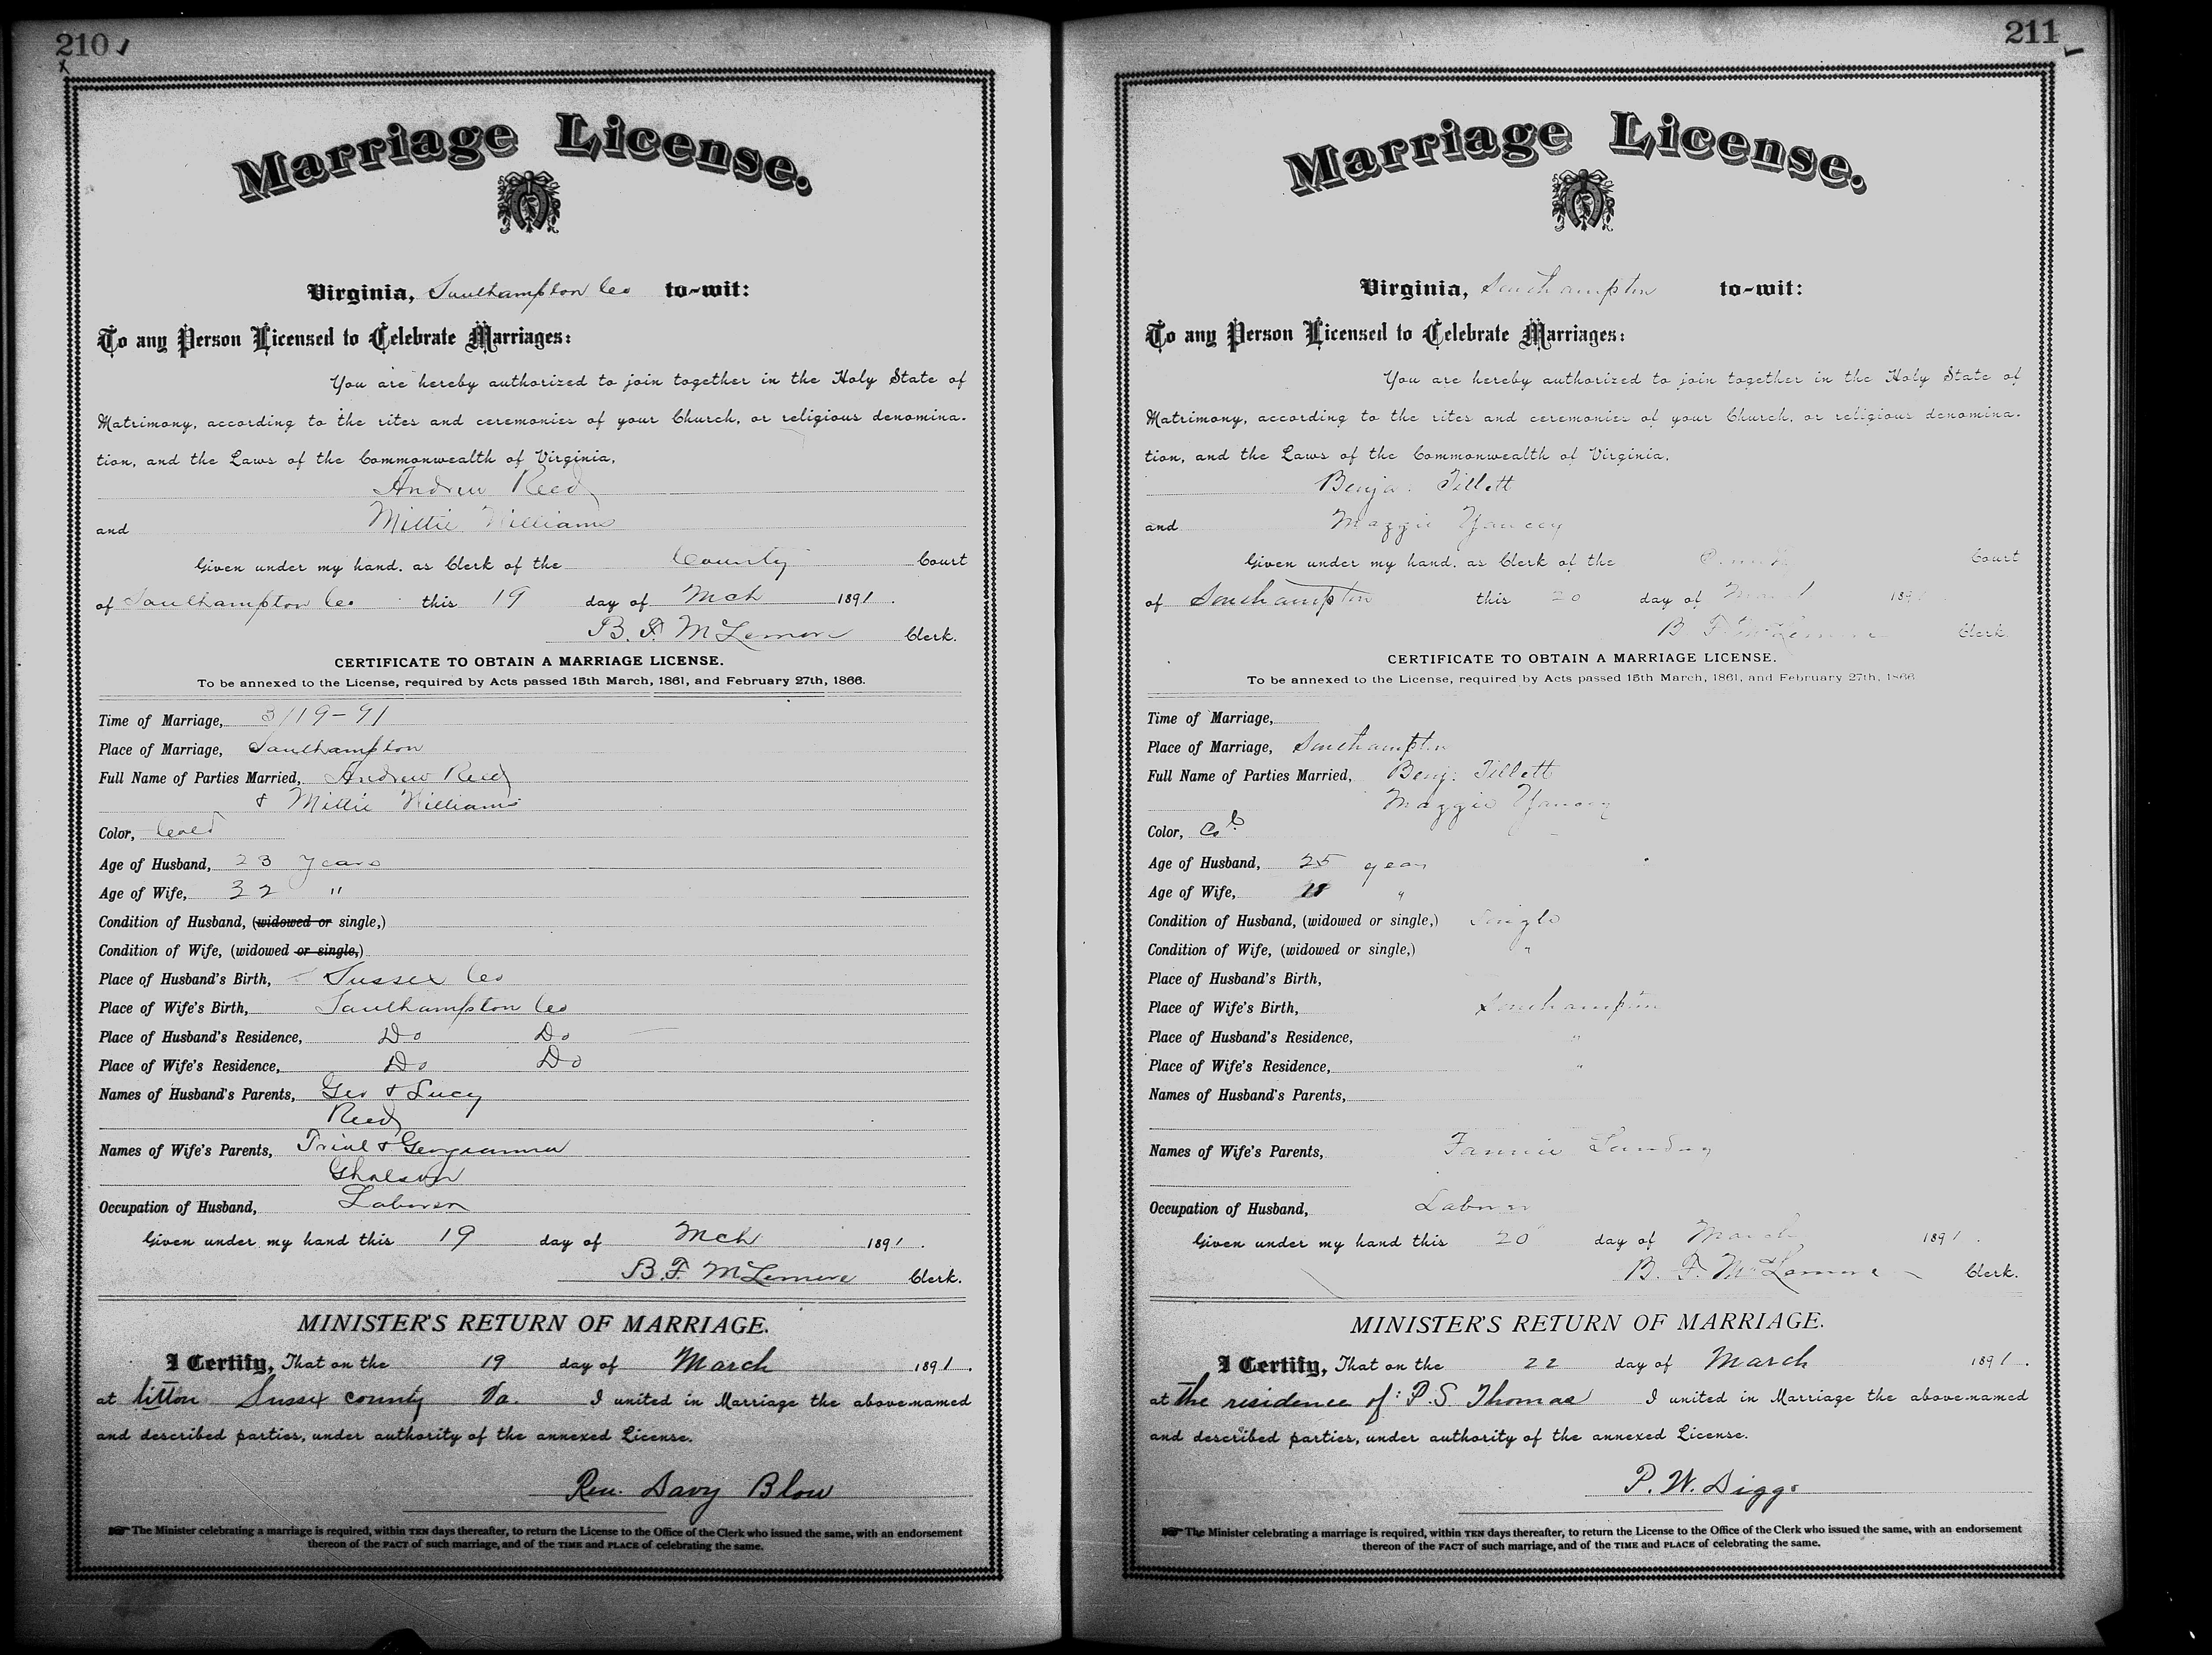 210
Marriage License.
Virginia, Southampton Co to-wit:
To any Person Licensed to Celebrate Marriages:
You are hereby authorized to join together in the Holy State of
Matrimony, according to the rites and ceremonies of your Church, or religious denomina-
tion, and the Laws of the Commonwealth of Virginia,
Andrew Reed
and Millie Williams
Given under my hand, as Clerk of the County Court
of Southampton Co this 19 day of Mch 1891.
B. F. McLemore Clerk.
CERTIFICATE TO OBTAIN A MARRIAGE LICENSE.
To be annexed to the License, required by Acts passed 15th March, 1861, and February 27th, 1866.
Time of Marriage, 3/19-91
Place of Marriage, Southampton
Full Name of Parties Married, Andrew Reed
& Millie Williams
Color, Cold
Age of Husband, 23 years
Age of Wife, 32 "
Condition of Husband, (widowed or single,)
Condition of Wife, (widowed or single,)
Place of Husband's Birth, Sussex Co
Place of Wife's Birth, Southampton Co
Place of Husband's Residence, Do Do
Place of Wife's Residence, Do Do
Names of Husband's Parents, Geo & Lucy
Reed
Names of Wife's Parents, & Georgianna
Gholson
Occupation of Husband, Laborer
Given under my hand this 19 day of Mch 1891.
B. F. McLemore Clerk.
MINISTER'S RETURN OF MARRIAGE.
I Certify, That on the 19 day of March 1891.
at Sussex county Va. I united in Marriage the above-named
and described parties, under authority of the annexed License.
Rev. Davy Blow
The Minister celebrating a marriage is required, within TEN days thereafter, to return the License to the Office of the Clerk who issued the same, with an endorsement
thereon of the FACT of such marriage, and of the TIME and PLACE of celebrating the same.
211
Marriage License.
Virginia, Southampton to-wit:
To any Person Licensed to Celebrate Marriages:
You are hereby authorized to join together in the Holy State of
Matrimony, according to the rites and ceremonies of your Church, or religious denomina-
tion, and the Laws of the Commonwealth of Virginia,
Benja. Tillett
and Maggie Yancey
Given under my hand, as Clerk of the County Court
of Southampton this 20 day of March 1891
B. F. McLemore Clerk.
CERTIFICATE TO OBTAIN A MARRIAGE LICENSE.
To be annexed to the License, required by Acts passed 15th March, 1861, and February 27th, 1866
Time of Marriage,
Place of Marriage, Southampton
Full Name of Parties Married, Benj. Tillett
Maggie Yancey
Color, Col
Age of Husband, 25 years
Age of Wife, "
Condition of Husband, (widowed or single,) Single
Condition of Wife, (widowed or single,) "
Place of Husband's Birth,
Place of Wife's Birth, Southampton
Place of Husband's Residence, "
Place of Wife's Residence, "
Names of Husband's Parents,
Names of Wife's Parents, Fannie
Occupation of Husband, Laborer
Given under my hand this 20 day of March 1891.
B. F. McLemore Clerk.
MINISTER'S RETURN OF MARRIAGE.
I Certify, That on the 22 day of March 1891.
at the residence of P. S Thomas I united in Marriage the above-named
and described parties, under authority of the annexed License.
P. W. Diggs
The Minister celebrating a marriage is required, within TEN days thereafter, to return the License to the Office of the Clerk who issued the same, with an endorsement
thereon of the FACT of such marriage, and of the TIME and PLACE of celebrating the same.